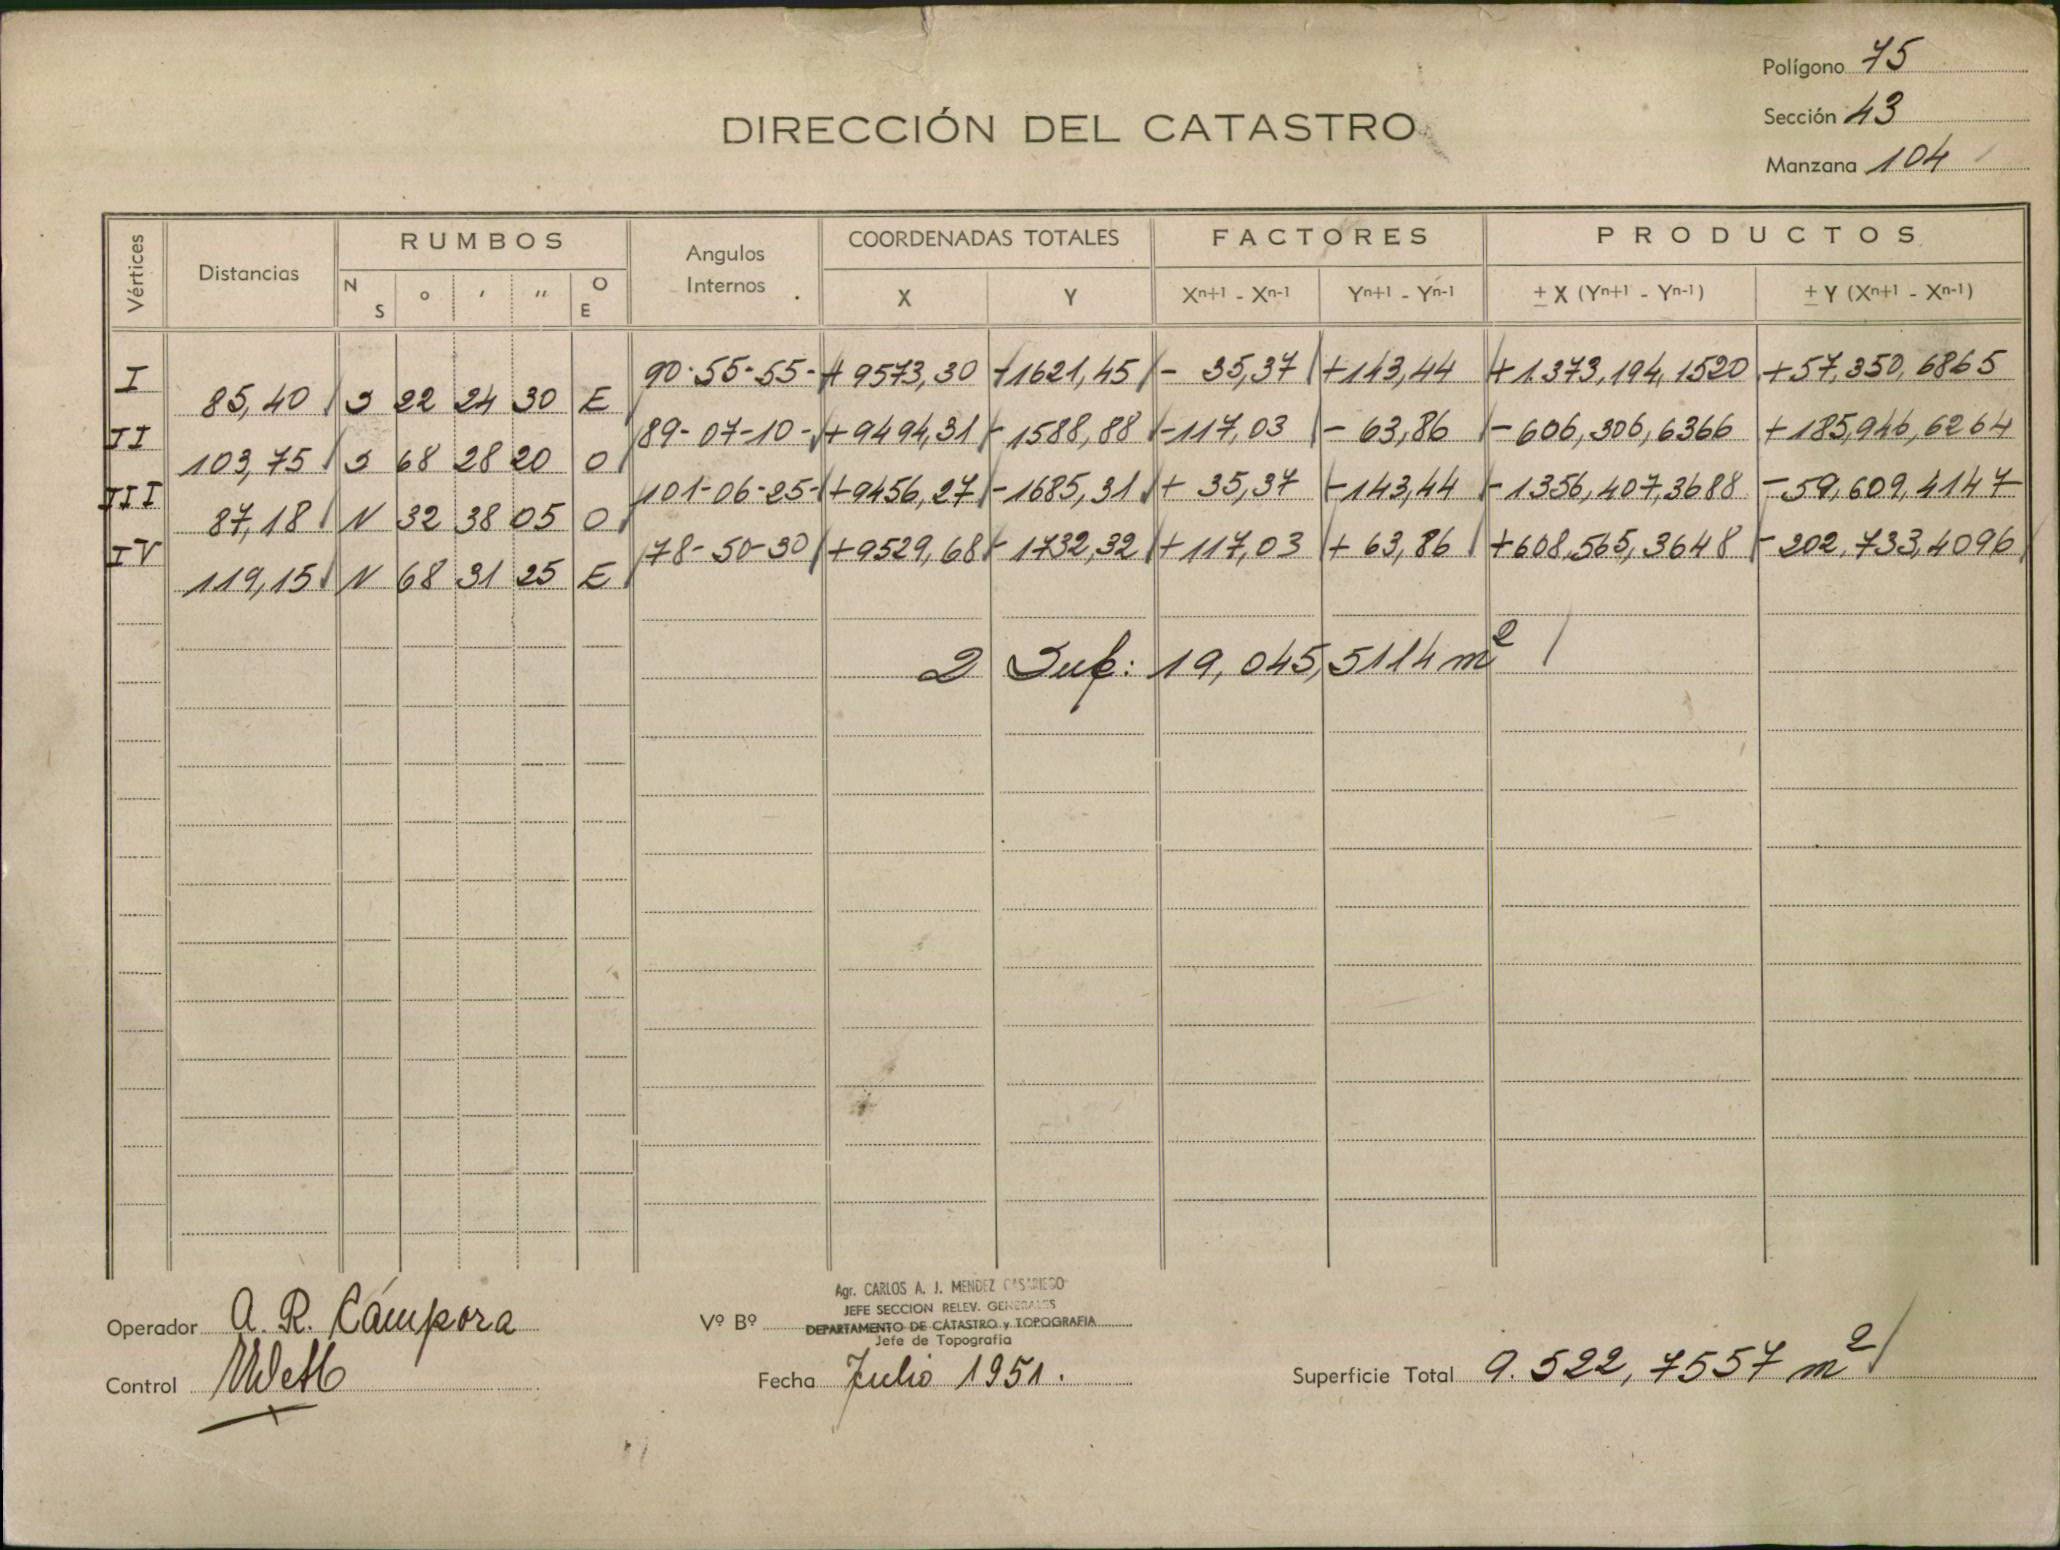 Polígono 75
DIRECCIÓN DEL CATASTRO
Sección 43
Manzana 104
Vértices Distancias RUMBOS Angulos Internos COORDENADAS TOTALES FACTORES PRODUCTOS
N S ° ' '' O E X Y Xn+1 - Xn-1 Yn+1 - Yn-1 ± X (Yn+1 - Yn-1) ± Y (Xn+1 - Xn-1)
I 90-55-55- +9573,30 -1621,45 - 35,37 +143,44 +1.373,194,1520 +57,350,6865
85,40 S 22 24 30 E
II 89-07-10- +9494,31 -1588,88 -117,03 - 63,86 -606,306,6366 +185,946,6264
103,75 S 68 28 20 O
III 101-06-25- +9456,27 -1685,31 + 35,37 -143,44 -1356,407,3688 -59,609,4147
87,18 N 32 38 05 O
IV 78-50-30 +9529,68 -1732,32 +117,03 + 63,86 +608,565,3648 -202,733,4096
119,15 N 68 31 25 E
2 Sup: 19,045,5114 m²
Agr. CARLOS A. J. MENDEZ CASARIEGO
JEFE SECCION RELEV. GENERALES
Operador A. R. Cámpora Vº Bº DEPARTAMENTO DE CATASTRO y TOPOGRAFIA
Jefe de Topografia
Control Fecha Julio 1951. Superficie Total 9.522,7557 m²